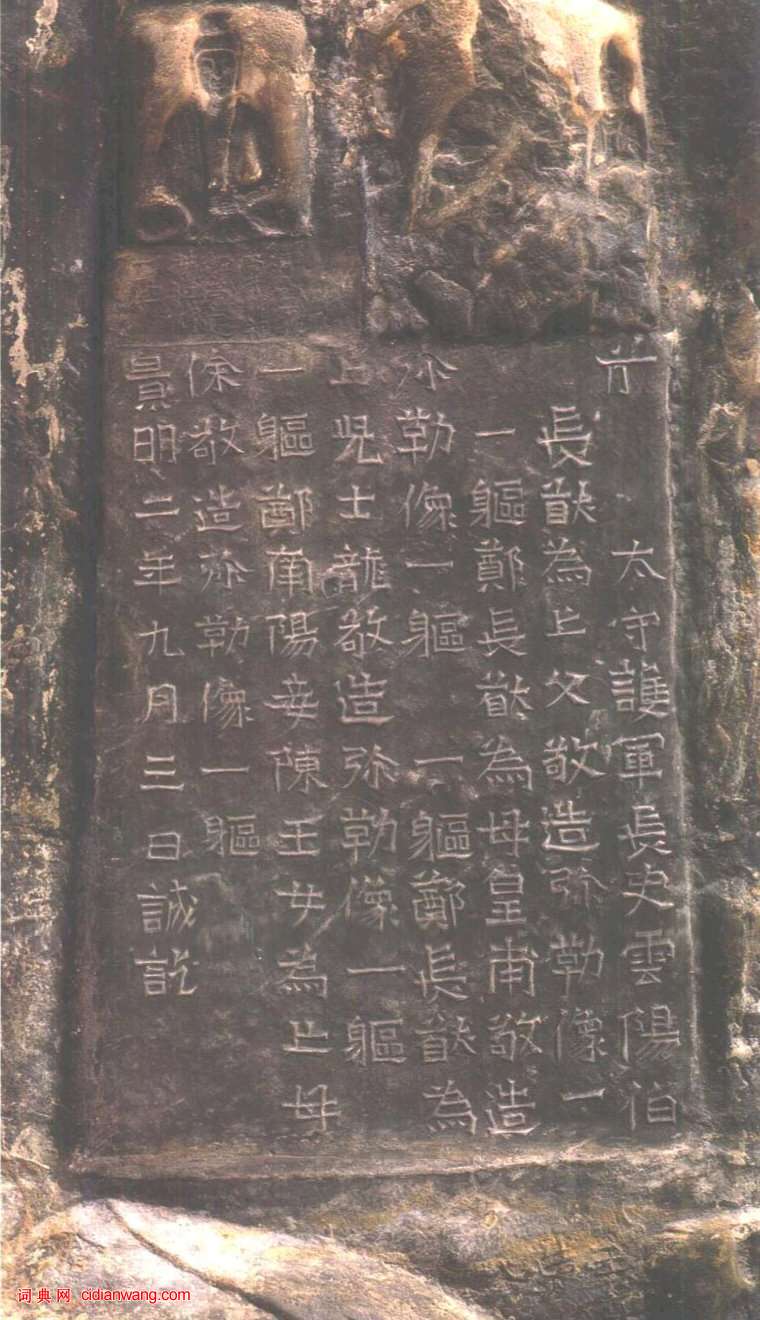 太守護軍長史雲陽伯
長猷為亡父敬造弥勒像一
一軀鄭長猷為母皇甫敬造
弥勒像一軀 一軀鄭長猷為
亡児士龍敬造弥勒像一軀
一軀鄭南陽妾陳玉女為亡母
徐敬造弥勒像一軀
景明二年九月三日誠訖
词典网 cidianwang.com